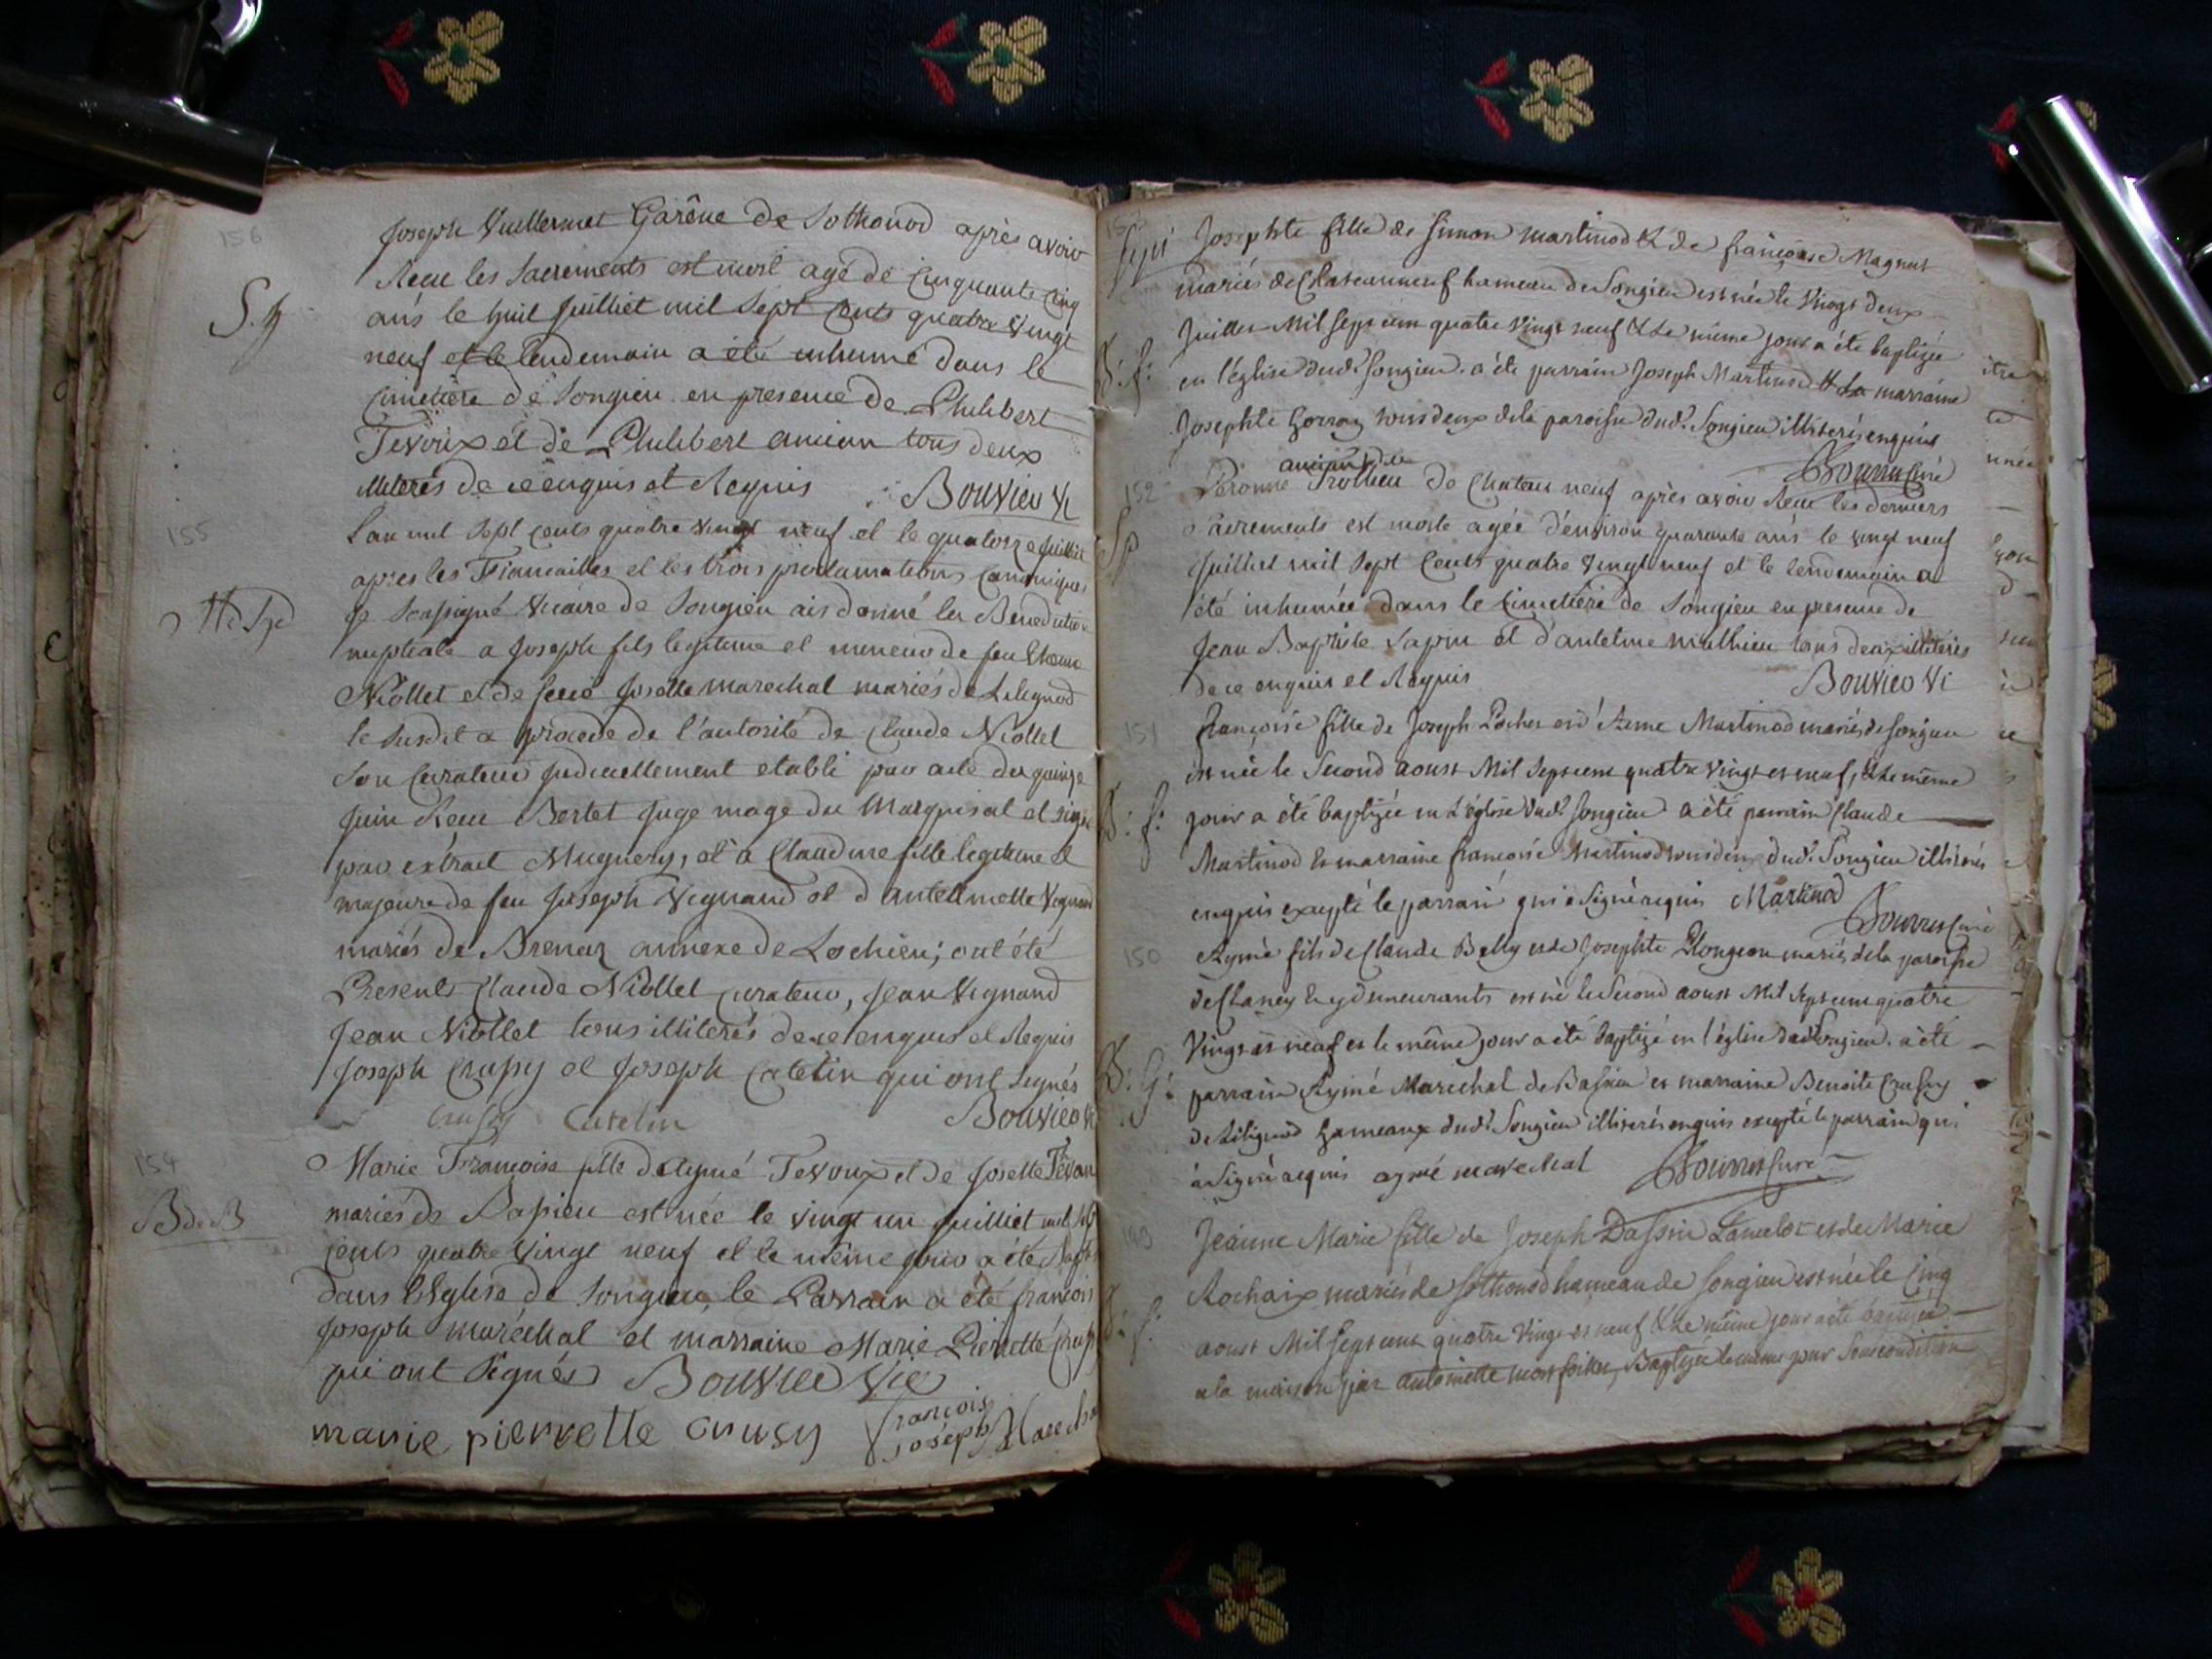 156
Joseph Vuillermet Garêne de Sothonod après avoir
Receu les Sacrements est mort agé de Cinquante Cinq
ans le huit Juilliet mil Sept Cents quatre Vingt
S. h
neuf et le lendemain a été inhumé dans le
Cimetiere de Songieu en presence de Philibert
Tevoux et de Philibert ancian tous deux
illiterés de ce enquis et Requis Bouvier Vi
155
L'an mil Sept Cents quatre Vingt neuf et le quatorze Juilliet
apres les Fiancailles et les trois proclamations Canoniques
Je Soussigné Vicaire de Songieu ais donné la Benediction
nuptiale a Joseph fils legitime et mineur de feu
Niollet et de feue Josette marechal mariés de Lilignod
le Susdit a procede de l'autorité de Claude Niollet
Son Curateur Judiciellement etabli par acte du quinze
Juin Receu Bertet Juge mage du Marquisat et signé
par extrait Mugnery, et a Claudine fille legitime et
majeure de feu Joseph Vignand et d'Anthelmette Vignand
mariés de Brenaz annexe de Lochieu; ont été
Presents Claude Niollet Curateur, Jean Vignand
Jean Niollet tous illiterés de ce enquis et Requis
Joseph Crusy et Joseph Catelin qui ont Signés
Crusy Catelin Bouvier Vi
154
Marie Françoise fille d'Aymé Tevoux et de Josette Tevoux
B de B
mariés de Bassieu est née le vingt un Juilliet mil Sept
cents quatre Vingt neuf et le même jour a été Bapt
dans l'Eglise de Songieu, le Parrain a été françois
Joseph maréchal et marraine Marie Pierrette Crusy
qui ont Signés Bouvier Vic
marie pierrette crusy françois
joseph Marecha
Sept Josephte fille de Simon martinod & de françoise Magnut
mariés de Chateauneuf hameau de Songieu est née le Vingt deux
Juillet Mil Sept cent quatre Vingt neuf & le même jour a été baptizée
B: f:
en l'église dud. Songieu. a été parrain Joseph Martinod & la marraine
Josephte tous deux de la paroisse dud. Songieu illiterés enquis
Bourrus Curé
ancian dite
152
Peronne Trollieu de Chateau neuf après avoir Receu les derniers
Sp
Sacrements est morte agée d'environ quarante ans le vingt neuf
Juilliet mil Sept Cents quatre Vingt neuf et le lendemain a
été inhumée dans le Cimetiere de Songieu en presence de
Jean Baptiste Sapin et d'antelme mathieu tous deux illiterés
de ce enquis et Requis Bouvier Vi
151
françoise fille de Joseph Pochet et d'Anne Martinod mariés de Songieu
est née le Second aoust Mil Septcent quatre Vingt et neuf, & le même
B: f:
jour a été baptizée en l'église dud. Songieu a été parrain Claude
Martinod & marraine françoise Martinod tous deux dud. Songieu illiterés
enquis excepté le parrain qui a Signé requis Martinod
Bourrus Curé
150
Aymé fils de Claude Belly et de Josephte Plongeon mariés de la paroisse
de Chaney & y demeurants est né le Second aoust Mil Septcent quatre
Vingt et neuf et le même jour a été baptizé en l'église dud. Songieu. a été
B: G:
parrain Aymé Marechal de Bassieu et marraine Benoite Crusy
de Lilignod hameaux dud. Songieu illiterés enquis excepté le parrain qui
a Signé requis aymé marechal Bourrus Curé
149
Jeanne Marie fille de Joseph Dassin Lancelot et de Marie
Rochaix mariés de Sothonod hameau de Songieu est née le Cinq
aoust Mil Sept cent quatre Vingt et neuf & le même jour a été
a la maison par antoinette Baptizée le même jour Sous condition